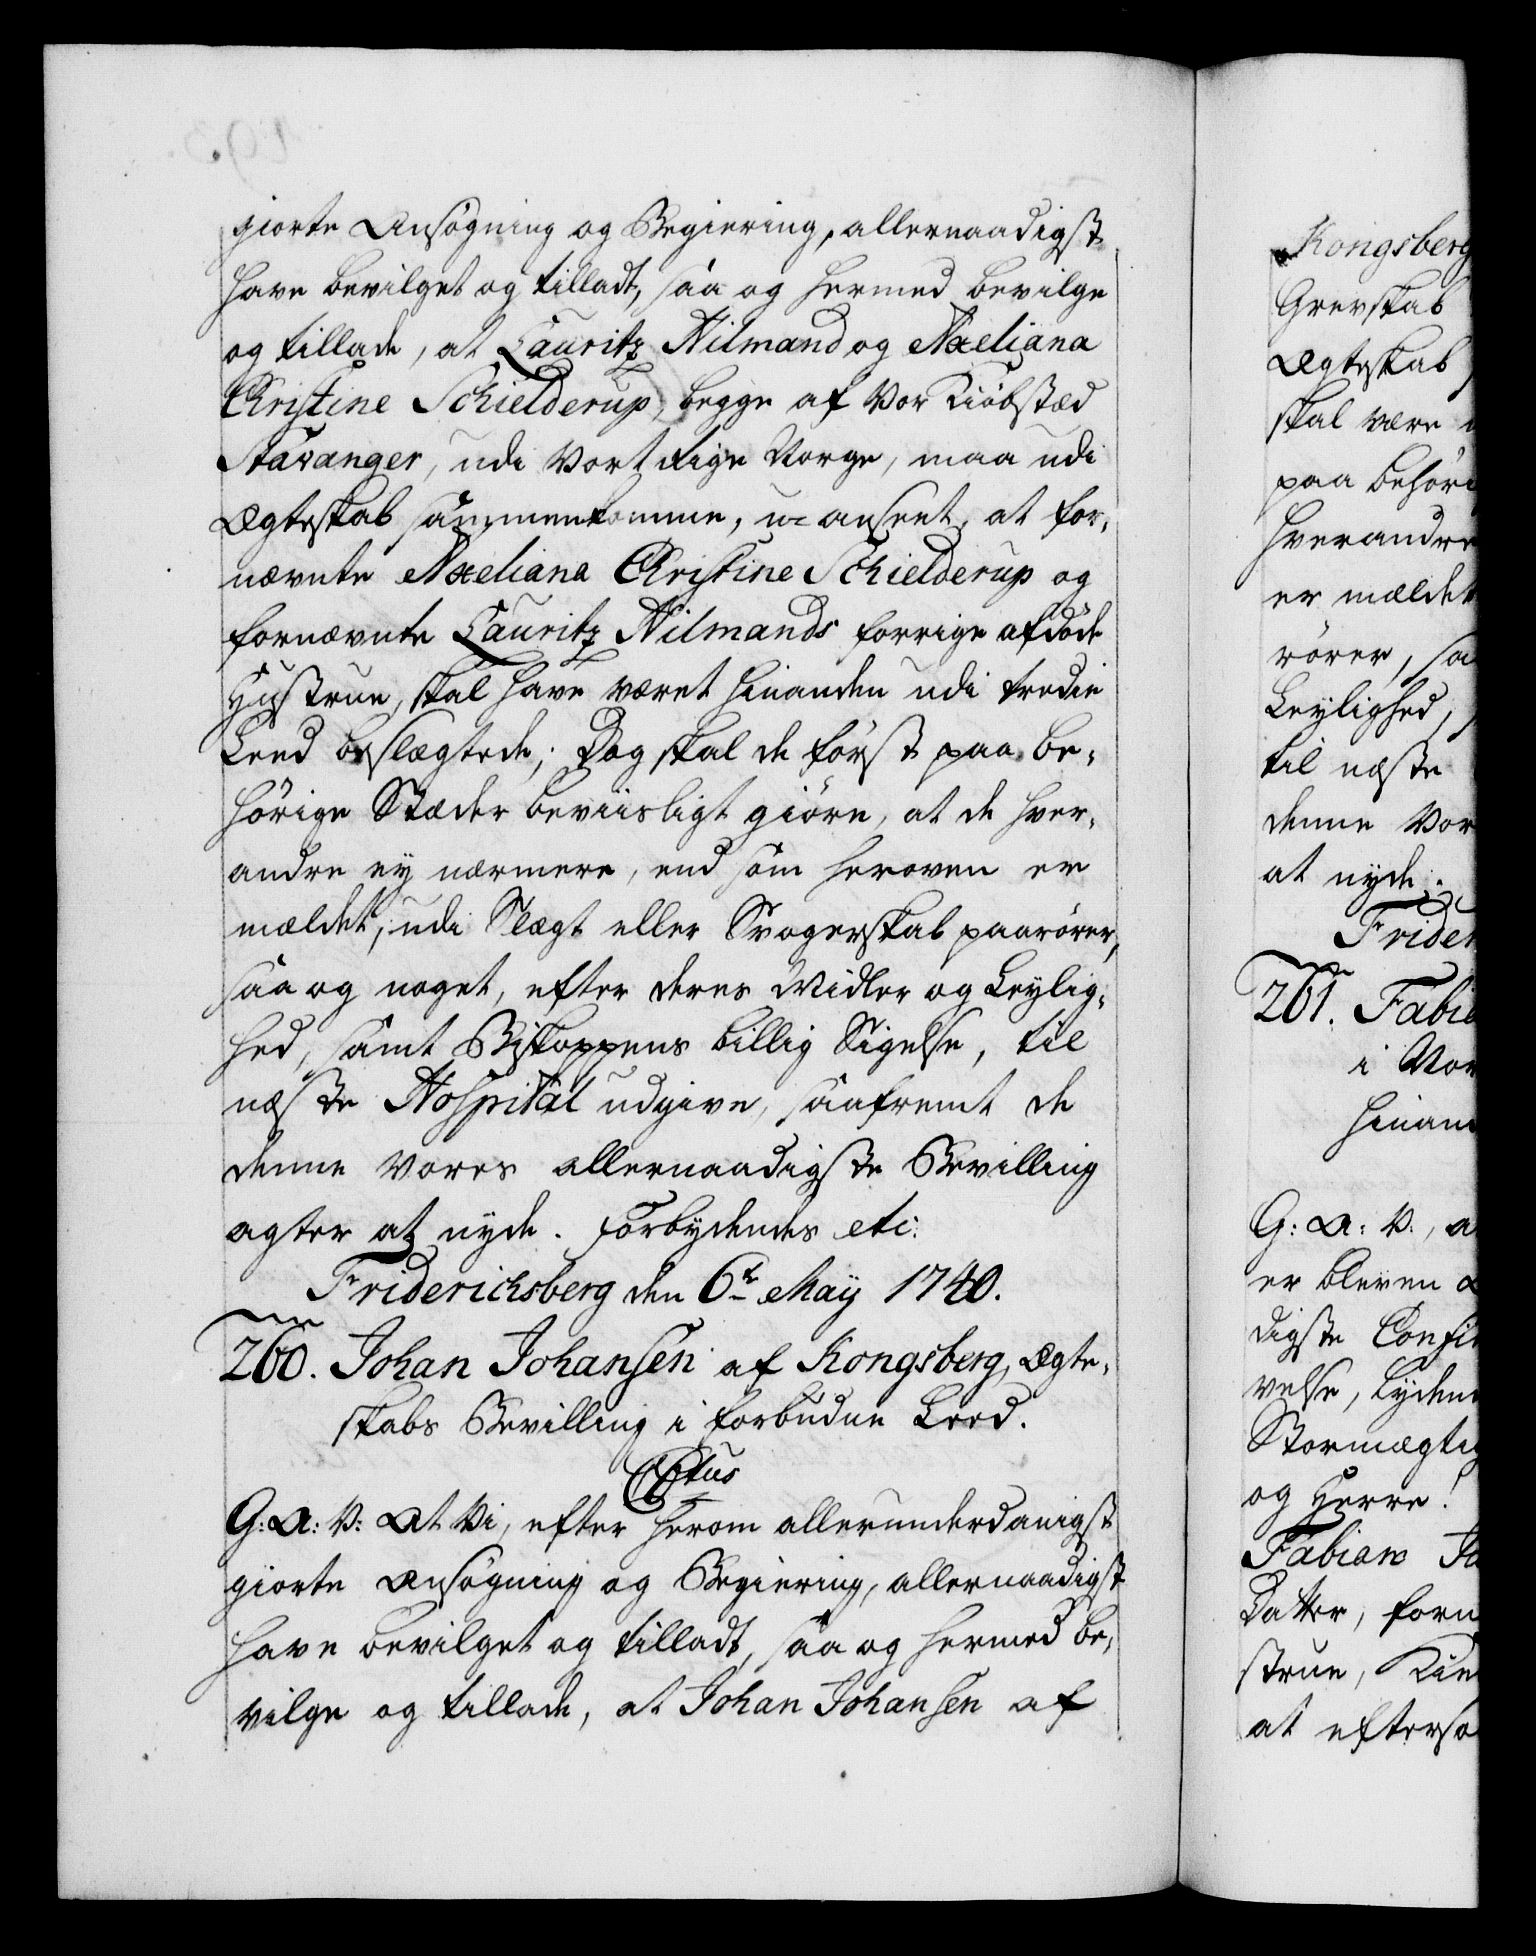 giorte Ansøgning og Begiering, allernaadigst
have bevilget og tilladt, saa og hermed bevilge
og tillade, at Lauritz Hilmand og Axeliana
Christine Schielderup, begge af Vor Kiøbstæd
Stavanger, udi Vort Rige Norge, maa udi
Ægteskab sammenkomme, u-anseet, at for-
nævnte Axeliana Christine Schielderup og
fornævnte Lauritz Hilmands forrige afdøde
Hustrue, skal have været hinanden udi tredie
Leed beslægtede; Dog skal de først paa be-
hørige Stæder beviisligt giøre, at de hver-
andre ey nærmere, end som heroven er
mældet, udi Slægt eller Svogerskab paarører,
saa og noget, efter deres Midler og Leylig-
hed, samt Biskoppens billig Sigelse, til
næste Hospital udgive, saafremt de
denne Vores allernaadigste Bevilling
agter at nyde. Forbydendes etc:
Friderichsberg den 6te May 1740.
260. Johan Johansen af Kongsberg, Ægte-
skabs Bevilling i forbudne Leed.
G: A: V: At Vi, efter herom allerunderdanigst
giorte Ansøgning og Begiering, allernaadigst
have bevilget og tilladt, saa og hermed be-
vilge og tillade, at Johan Johansen af
Kongsberg
Grevskab
Ægteskab
skal være
paa behøri
hverandre
er mældet
rører, sa
Leylighed,
til næste
denne Vor
at nyde.
Frider
261. Fabia
i Vor
hinan
G: A: V:, a
er bleven
digste Confir
velse, lydend
Stormægtig
og Herre!
Fabian Jo
Datter, forn
strue, Kir
at efterso